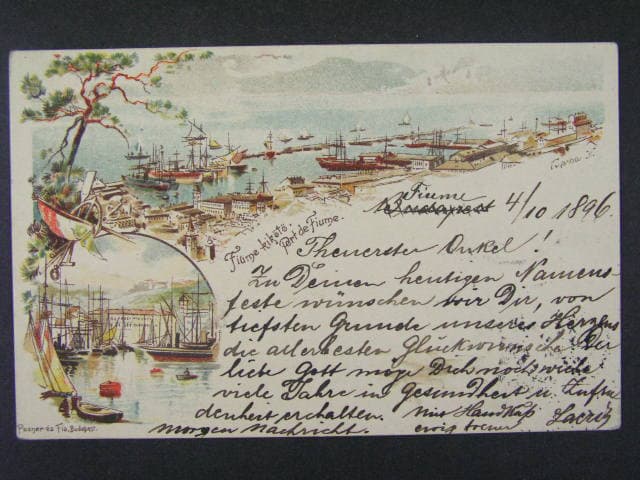 Fiume kikötő.
Port de Fiume.
Fiume
Budapest 4/10 1896
Theuerster Onkel!
Zu Deinem heutigen Namens-
feste wünschen wir Dir, von
tiefsten Grunde unseres Herzens
die allerbesten Glückwünsche. Der
liebe Gott möge Dich noch viele
viele Jahre in Gesundheit u. Zufrie
denheit erhalten. Mit Handkuß
morgen Nachricht. ewig treuer
Posner és Fia, Budapest.